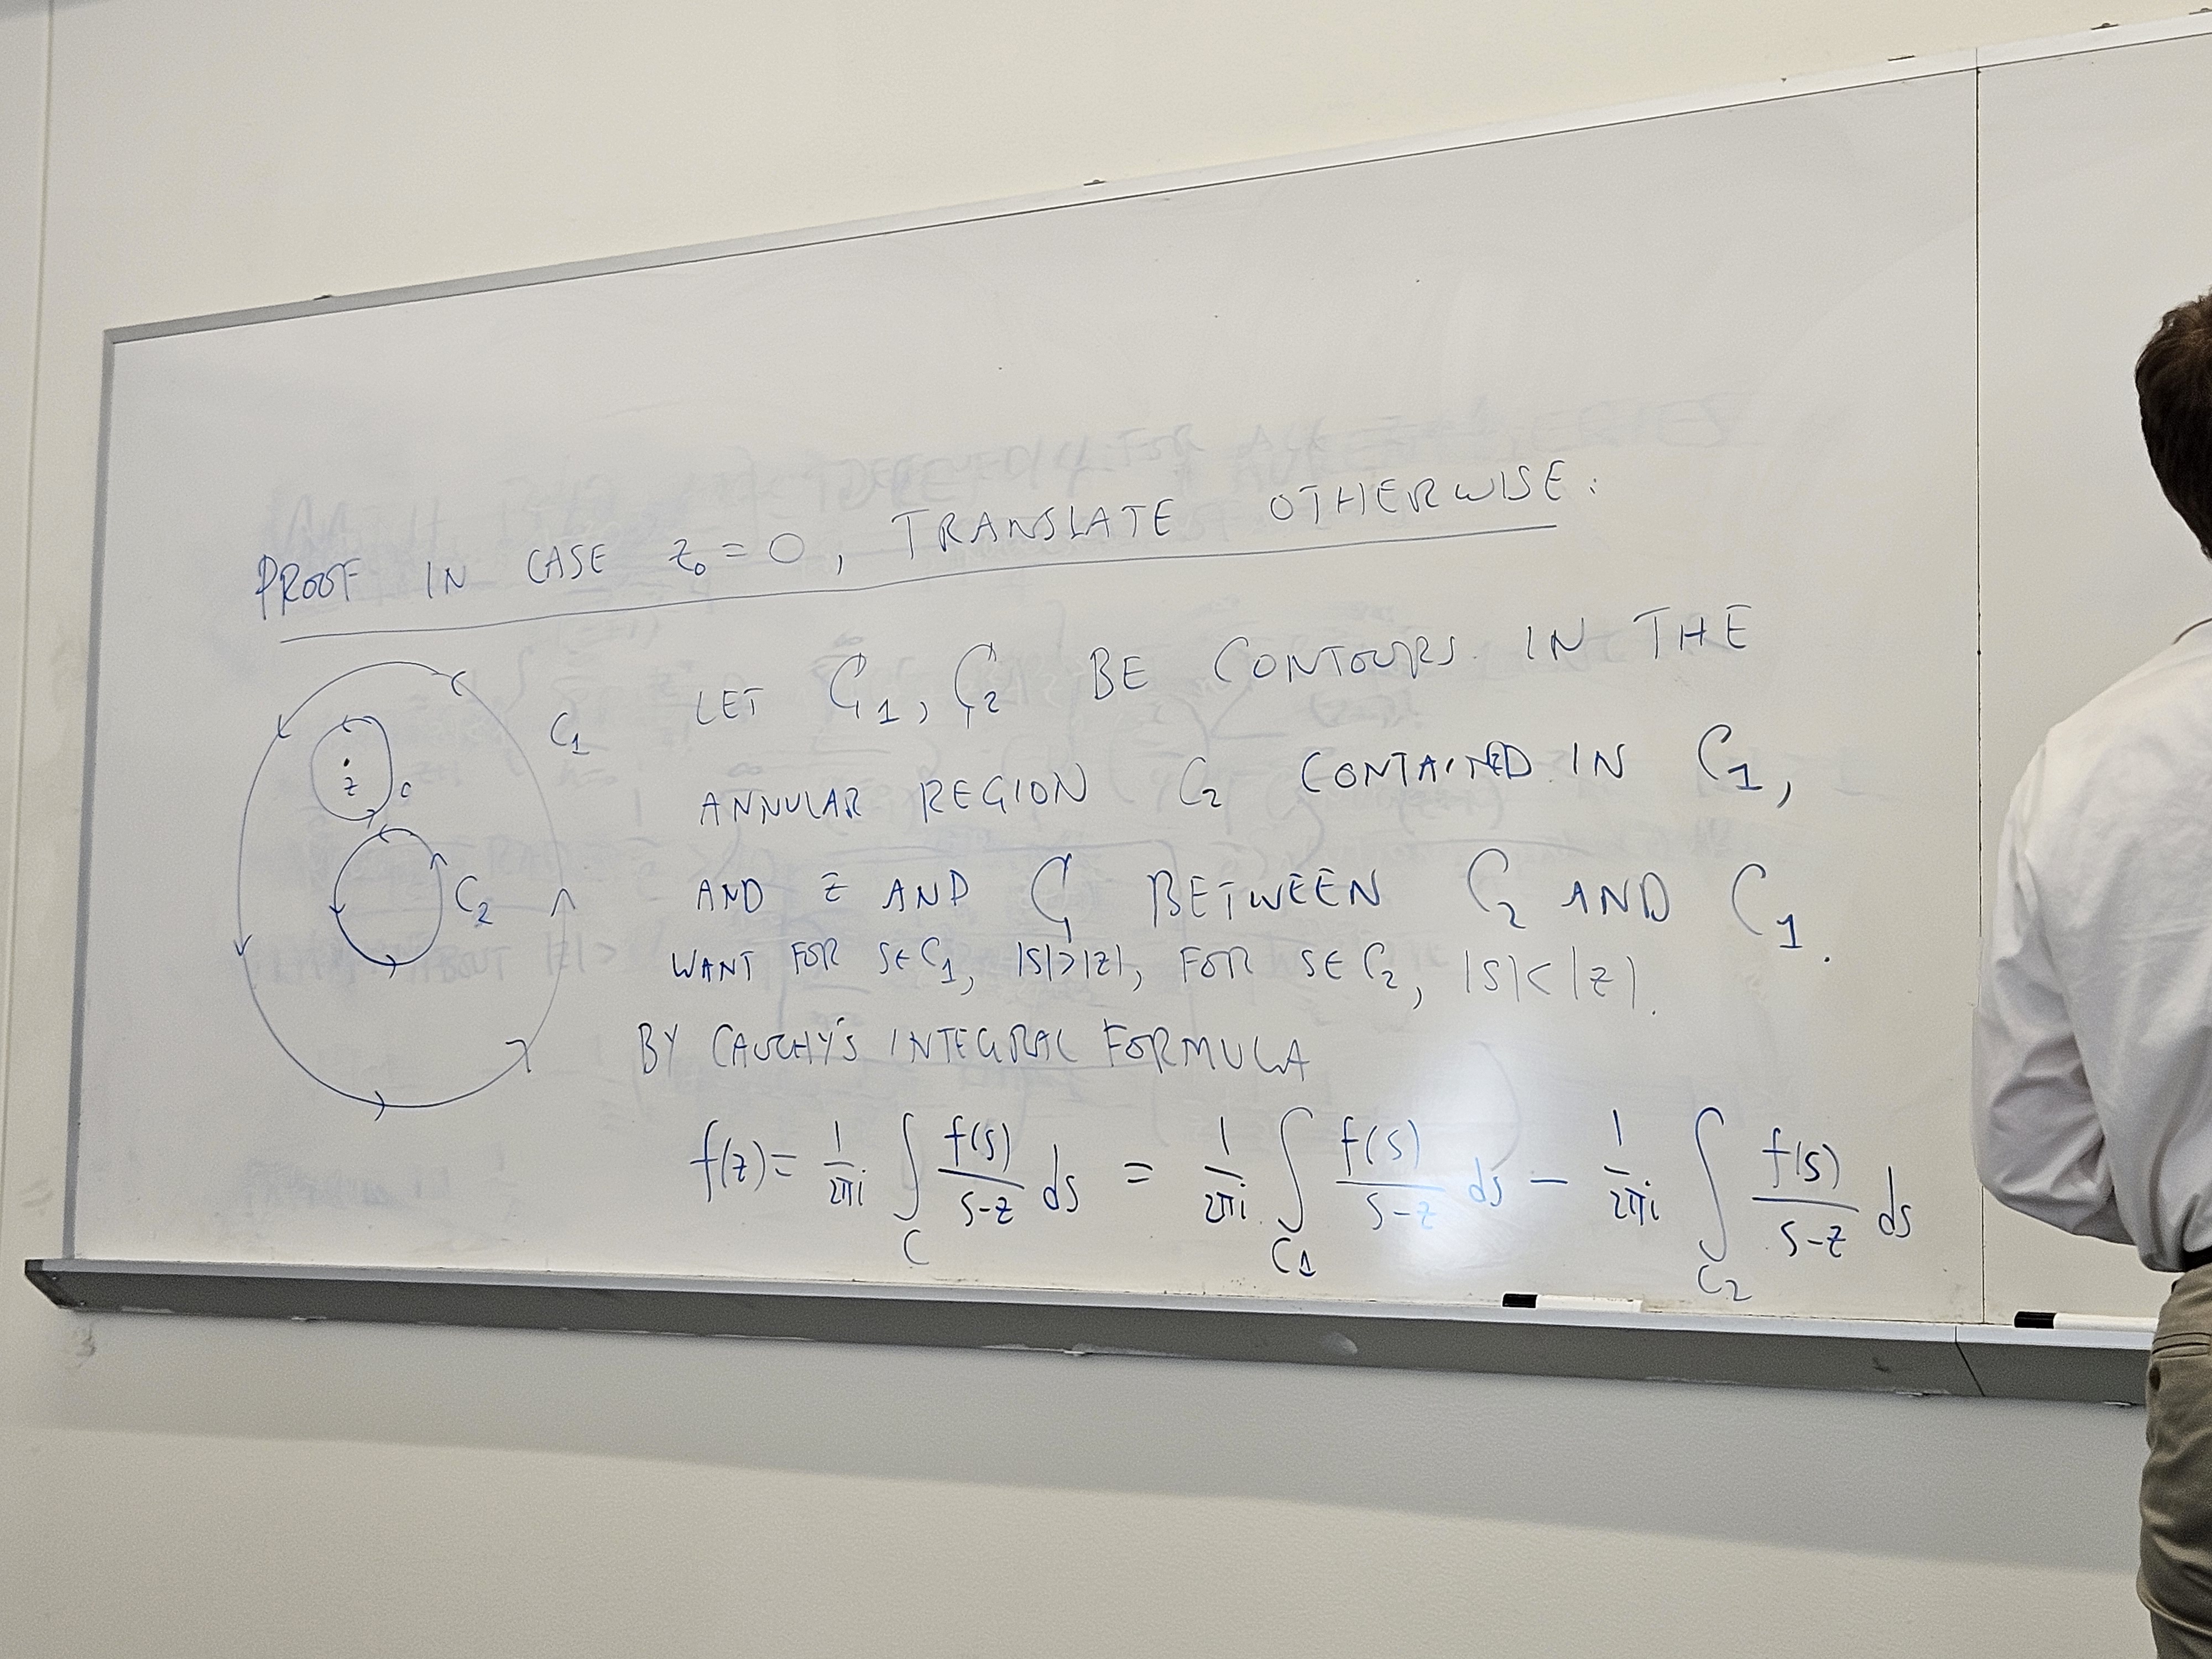 PROOF IN CASE z₀ = 0, TRANSLATE OTHERWISE:
LET C₁, C₂ BE CONTOURS IN THE
ANNULAR REGION C₂ CONTAINED IN C₁,
AND z AND C BETWEEN C₂ AND C₁.
WANT FOR s∈C₁, |s|>|z|, FOR s∈C₂, |s|<|z|.
BY CAUCHY'S INTEGRAL FORMULA
f(z) = 1/2πi ∫_C f(s)/(s-z) ds = 1/2πi ∫_C₁ f(s)/(s-z) ds − 1/2πi ∫_C₂ f(s)/(s-z) ds
C₁
z
C
C₂